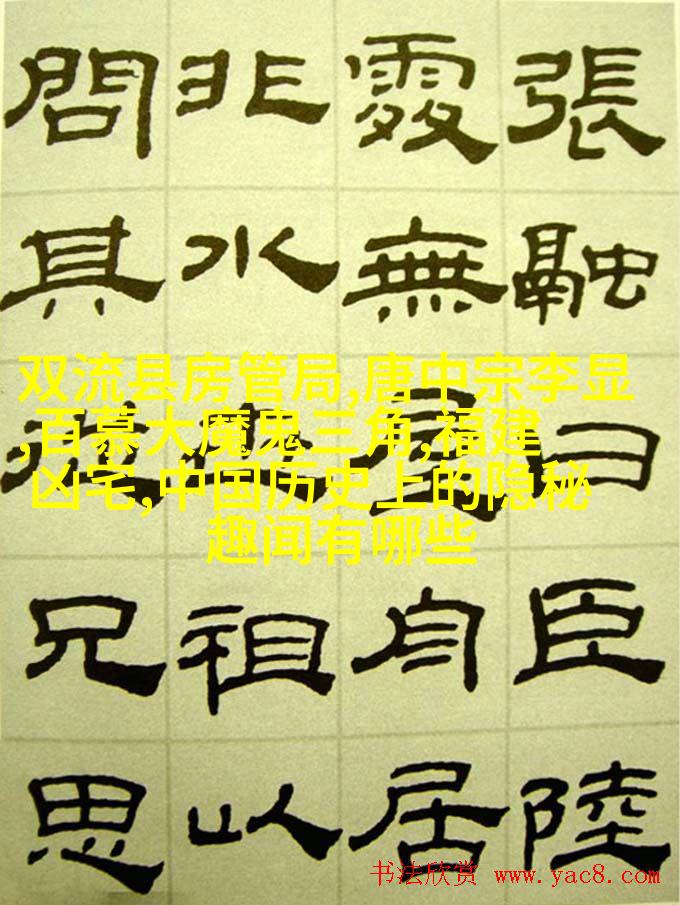 張融曰臣陸
處無屋舟居
非水祖以
問其從兄思
双流县房管局,唐中宗李显
,百慕大魔鬼三角,福建
凶宅,中国历史上的隐秘
趣闻有哪些
书法欣赏 www.yac8.com